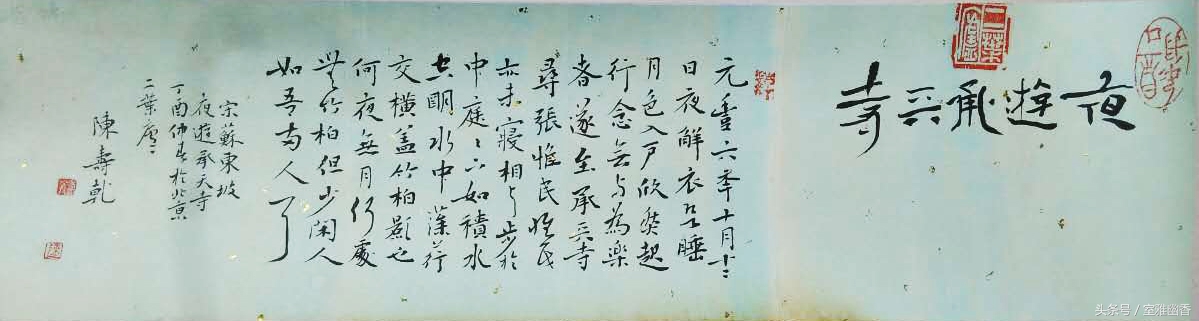 夜遊承兲寺
二葉廬
元豐六年十月十二
日夜解衣欲睡
月色入户欣然起
行念無与為樂
者遂至承兲寺
尋張懷民懷民
亦未寢相与步於
中庭〻下如積水
空明水中藻荇
交橫盖竹柏影也
何夜無月何處
無竹柏但少閑人
如吾两人耳
宋蘇東坡
夜遊承天寺
丁酉仲春於北京
二葉廬
陳壽乾
头条号 / 室雅幽香